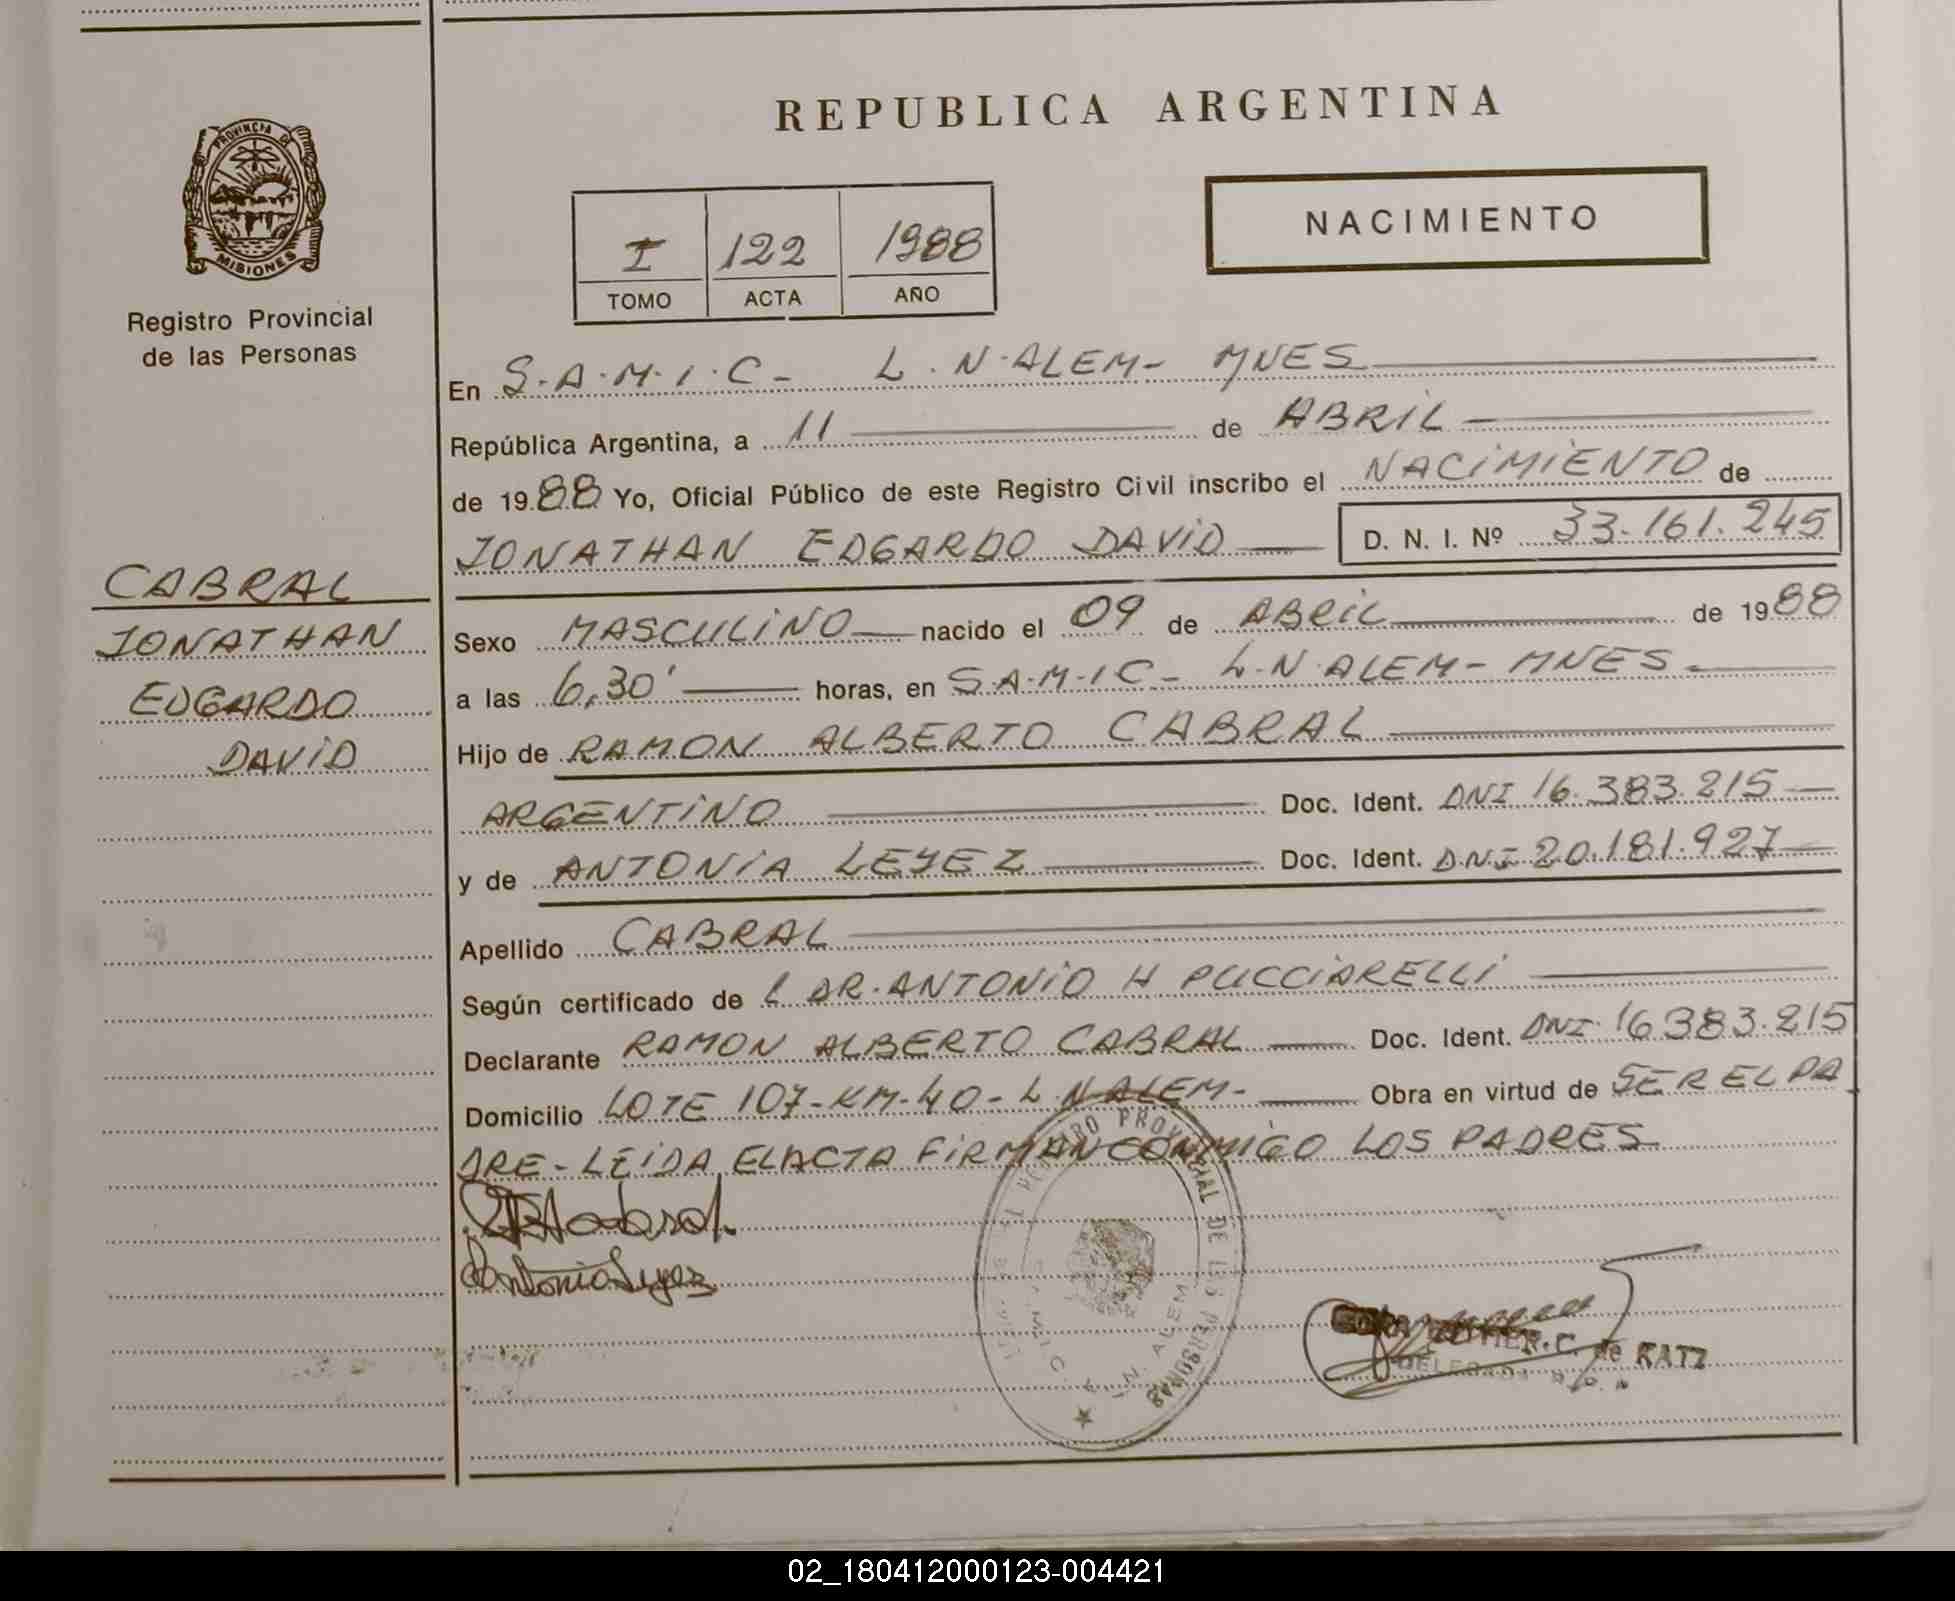 PROVINCIA DE
MISIONES
Registro Provincial
de las Personas
CABRAL
JONATHAN
EDGARDO
DAVID
REPUBLICA ARGENTINA
I 122 1988
TOMO ACTA AÑO
NACIMIENTO
En S.A.M.I.C- L.N.ALEM- MNES
República Argentina, a 11 de ABRIL
de 1988 Yo, Oficial Público de este Registro Civil inscribo el NACIMIENTO de
JONATHAN EDGARDO DAVID D. N. I. Nº 33.161.245
Sexo MASCULINO nacido el 09 de ABRIL de 1988
a las 6,30' horas, en S.A.M.I.C- L.N.ALEM- MNES-
Hijo de RAMON ALBERTO CABRAL
ARGENTINO Doc. Ident. DNI 16.383.215
y de ANTONIA LEYEZ Doc. Ident. DNI 20.181.927
Apellido CABRAL
Según certificado de L DR. ANTONIO H PUCCIARELLI
Declarante RAMON ALBERTO CABRAL Doc. Ident. DNI 16383.215
Domicilio LOTE 107-KM-40-L.N.ALEM- Obra en virtud de SER EL PA
DRE-LEIDA EL ACTA FIRMAN CONMIGO LOS PADRES
Antonia Leyez
REGISTRO PROVINCIAL DE LAS PERSONAS
L.N. ALEM
R.C. de KATZ
DELEGADA
02_180412000123-004421